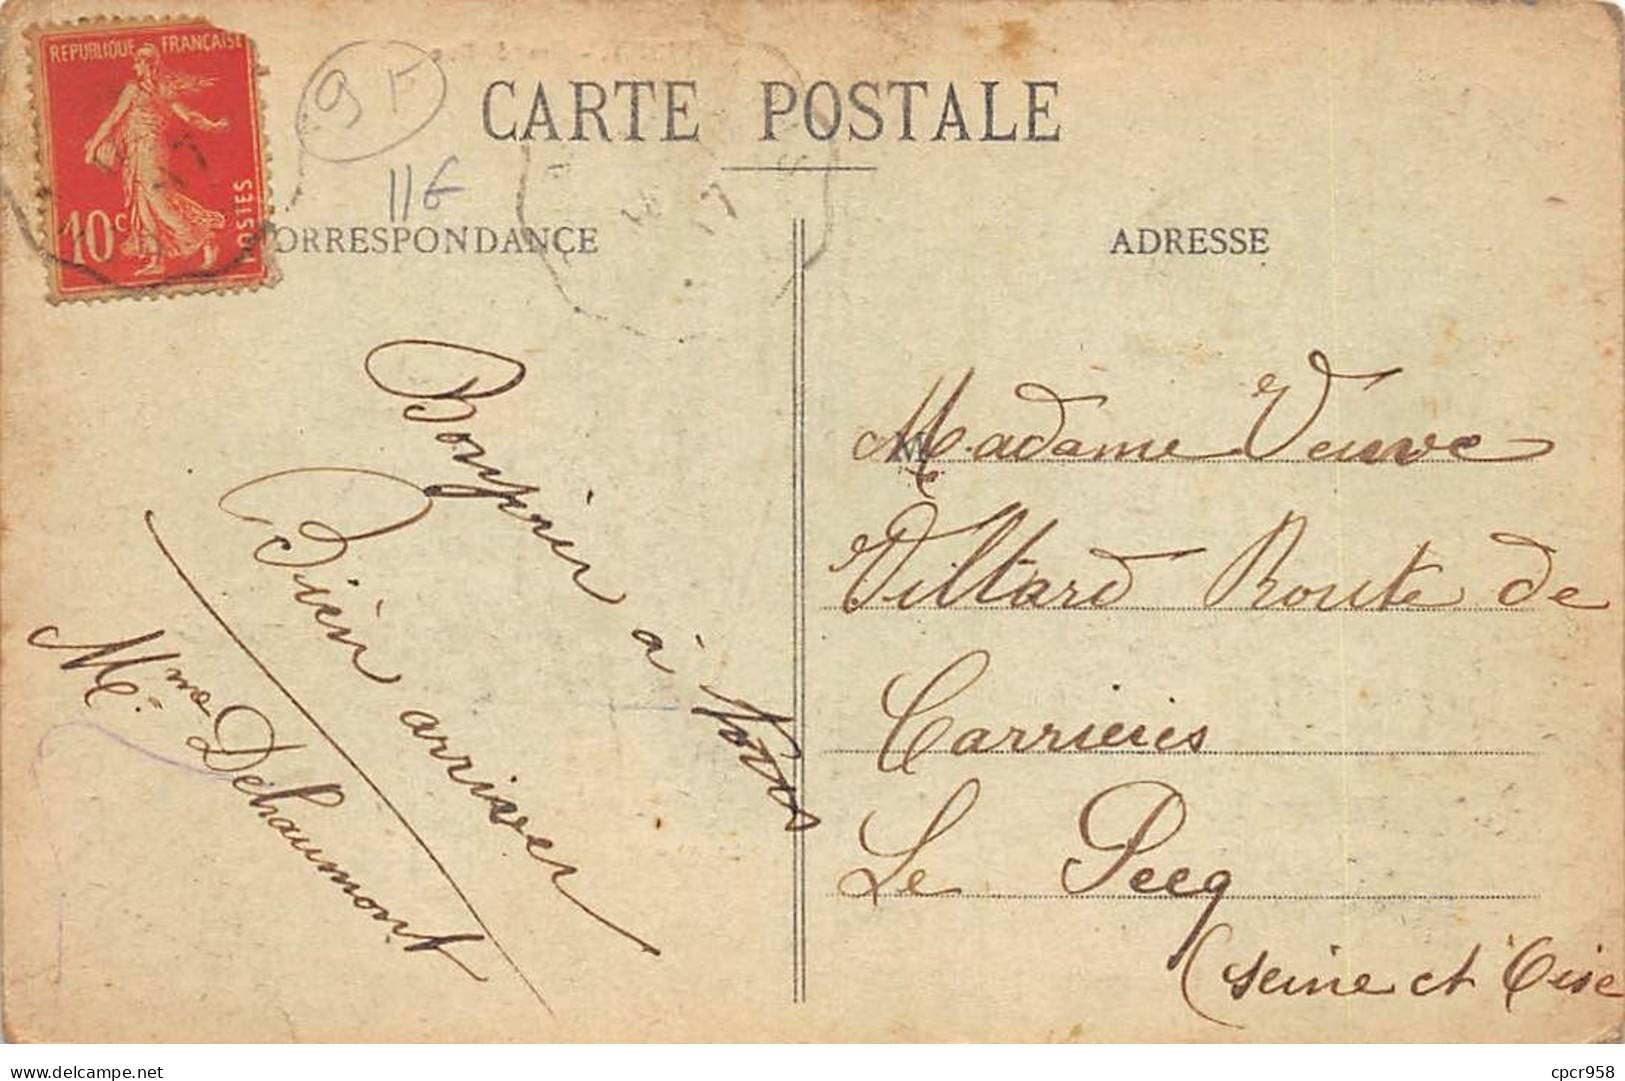 REPUBLIQUE FRANÇAISE
10c
POSTES
9F
11€
17
CARTE POSTALE
17
ORRESPONDANCE
ADRESSE
Bonjour à Vous
Bien arriver
Mme Dehaumont
M
Madame Veuve
Villard Route de
Carrieres
Le Pecq
(Seine et Oise
cpcr958